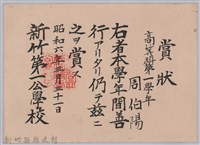 賞狀
高等科第一學年
周伯陽
右者本學年間善
行アリタリ仍テ茲ニ
之ヲ賞ス
昭和六年三月二十一日
新竹第一公學校